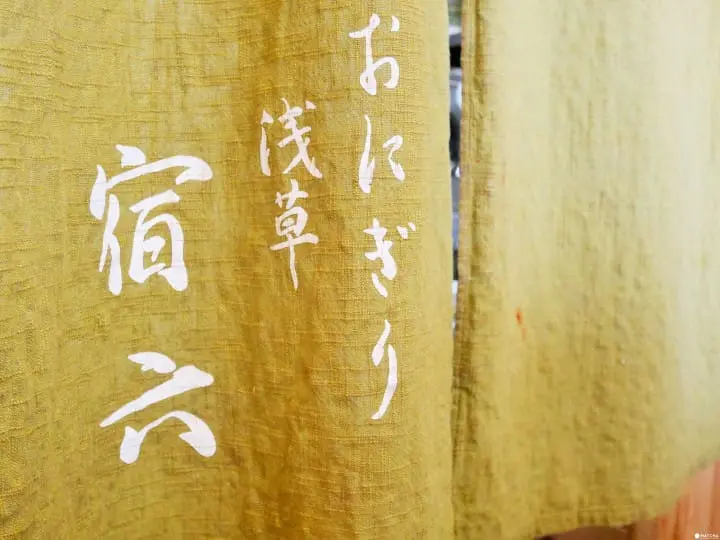 おにぎり
浅草
宿六
MATCHA